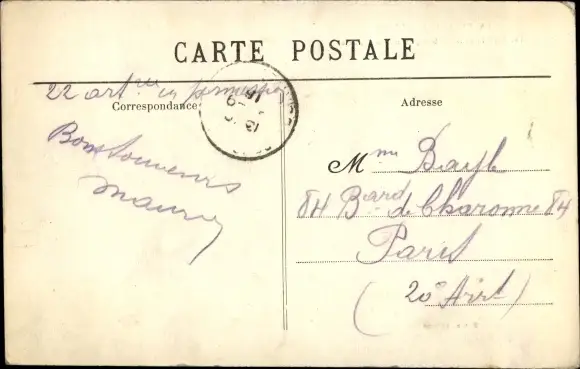 CARTE POSTALE
22 art
Correspondance
Bons souvenirs
Adresse
Mme Bayle
84 Bard de Charonne 84
Paris
(20e Arrt)